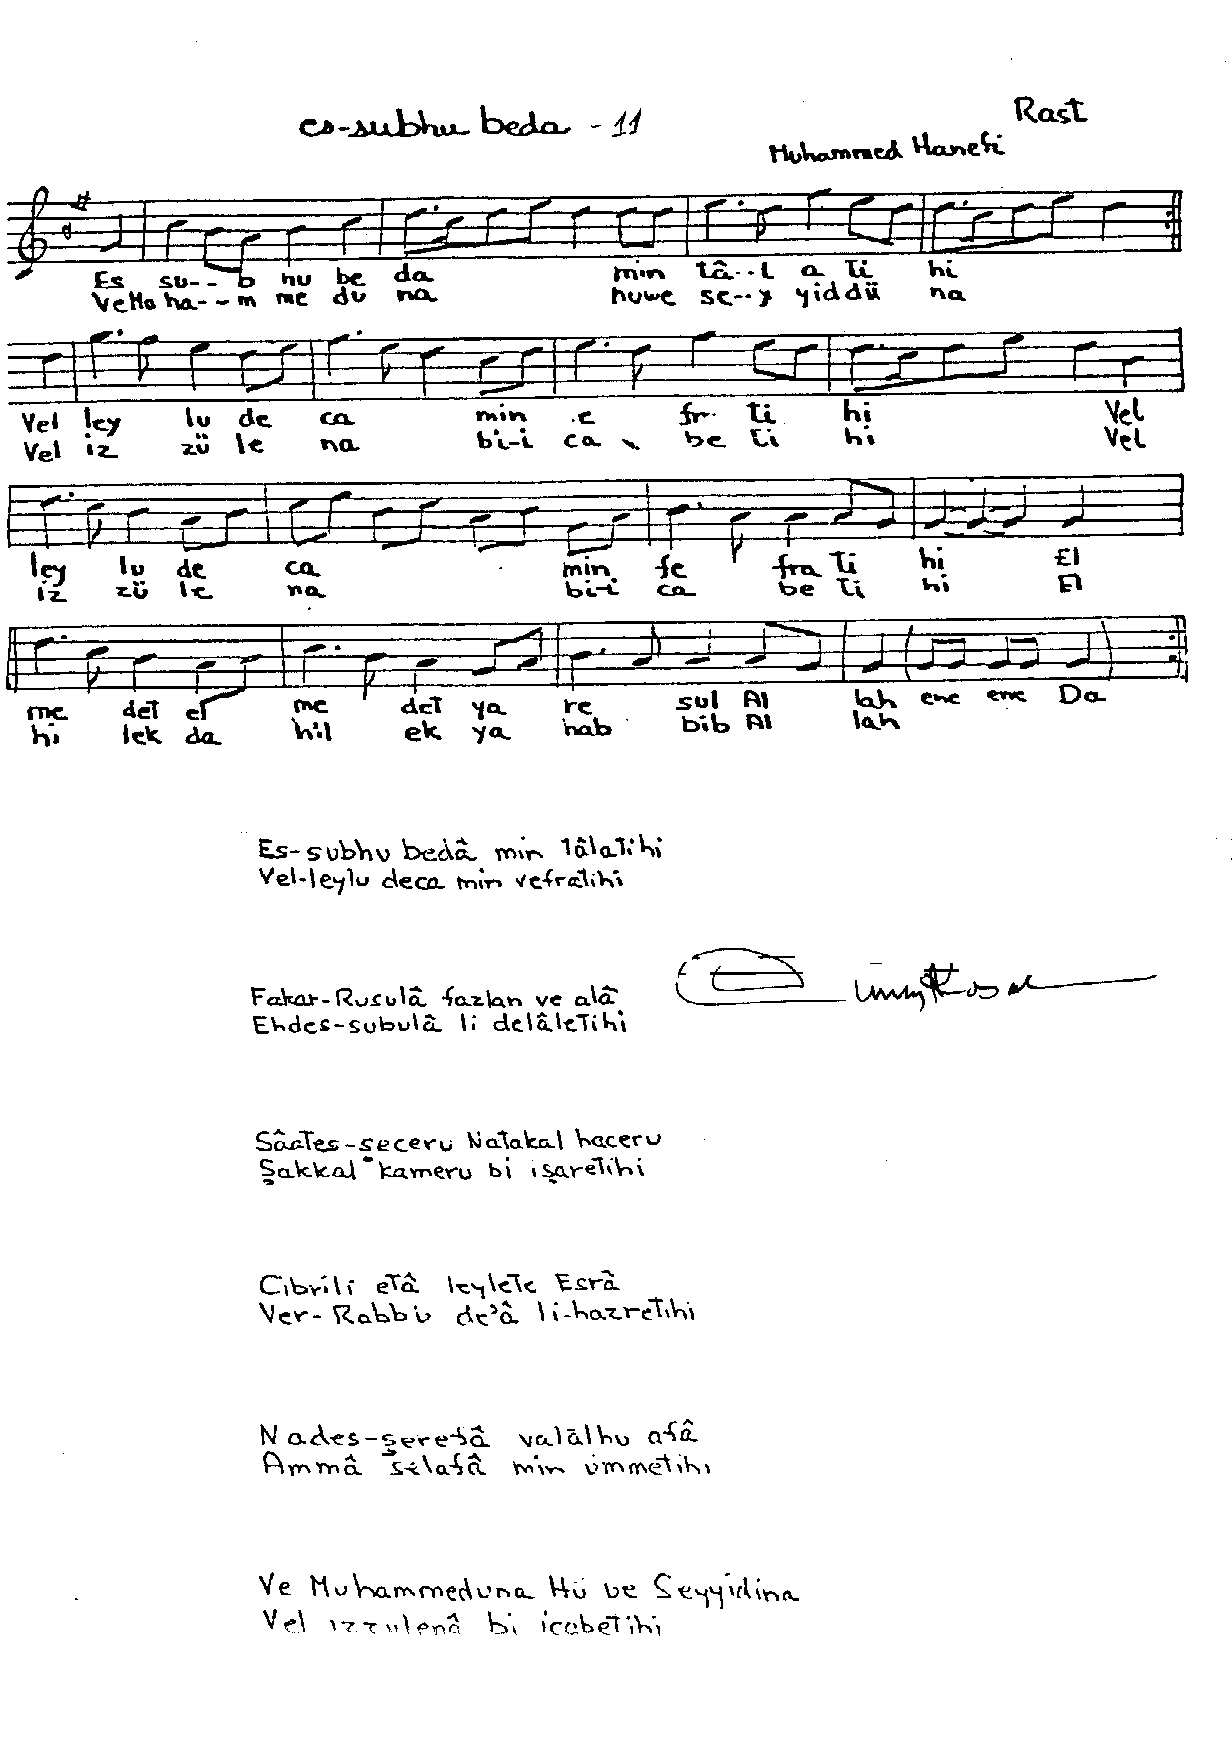 es-subhu beda - 11
Rast
Muhammed Hanefi
Es su-- b hu be da min tâ--l a ti hi
VeMo ha--m me du na huwe se--y yiddü na
Vel ley lu de ca min .e fr. ti hi Vel
Vel iz zü le na bi-i ca be ti hi Vel
ley lu de ca min fe fra ti hi El
iz zü le na bi-i ca be ti hi El
me det el me det ya re sul Al lah ene ene Da
hi lek da hil ek ya hab bib Al lah
Es-subhu bedâ min tâlatihi
Vel-leylu deca min vefratihi
Fakar-Rusulâ fazlan ve alâ
Ehdes-subulâ li delâletihi
Sâates-seceru Natakal haceru
Şakkal kameru bi işaretihi
Cibrili etâ leylete Esrâ
Ver-Rabbu de'â li-hazretihi
Nades-şerefâ valâlhu afâ
Ammâ selafâ min ümmetihi
Ve Muhammeduna Hü ve Seyyidina
Vel izzulenâ bi icabetihi